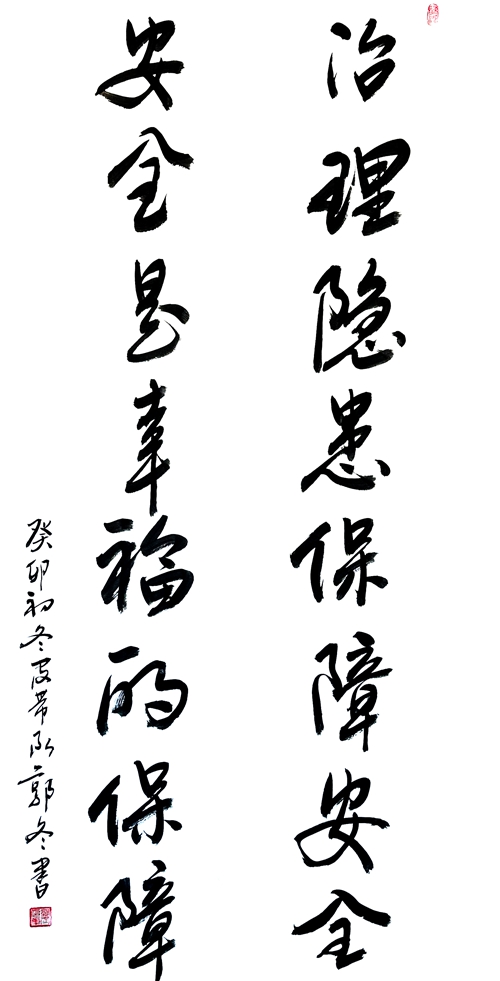 治理隐患保障安全
安全是幸福的保障
癸卯初冬皮带队郭冬書